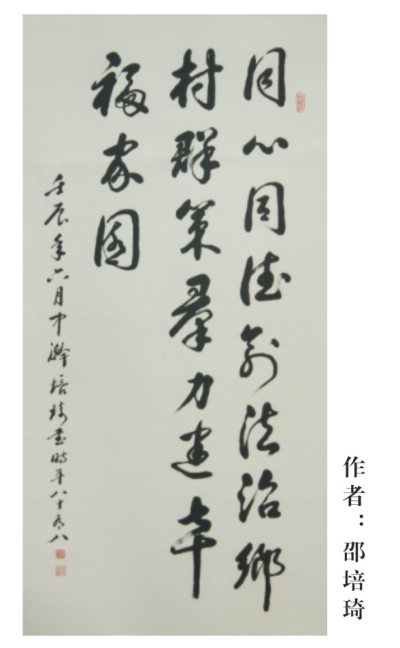 同心同德創法治鄉
村群策羣力建幸
福家園
壬辰年六月中澣培琦書時年八十有八
作者：邵培琦